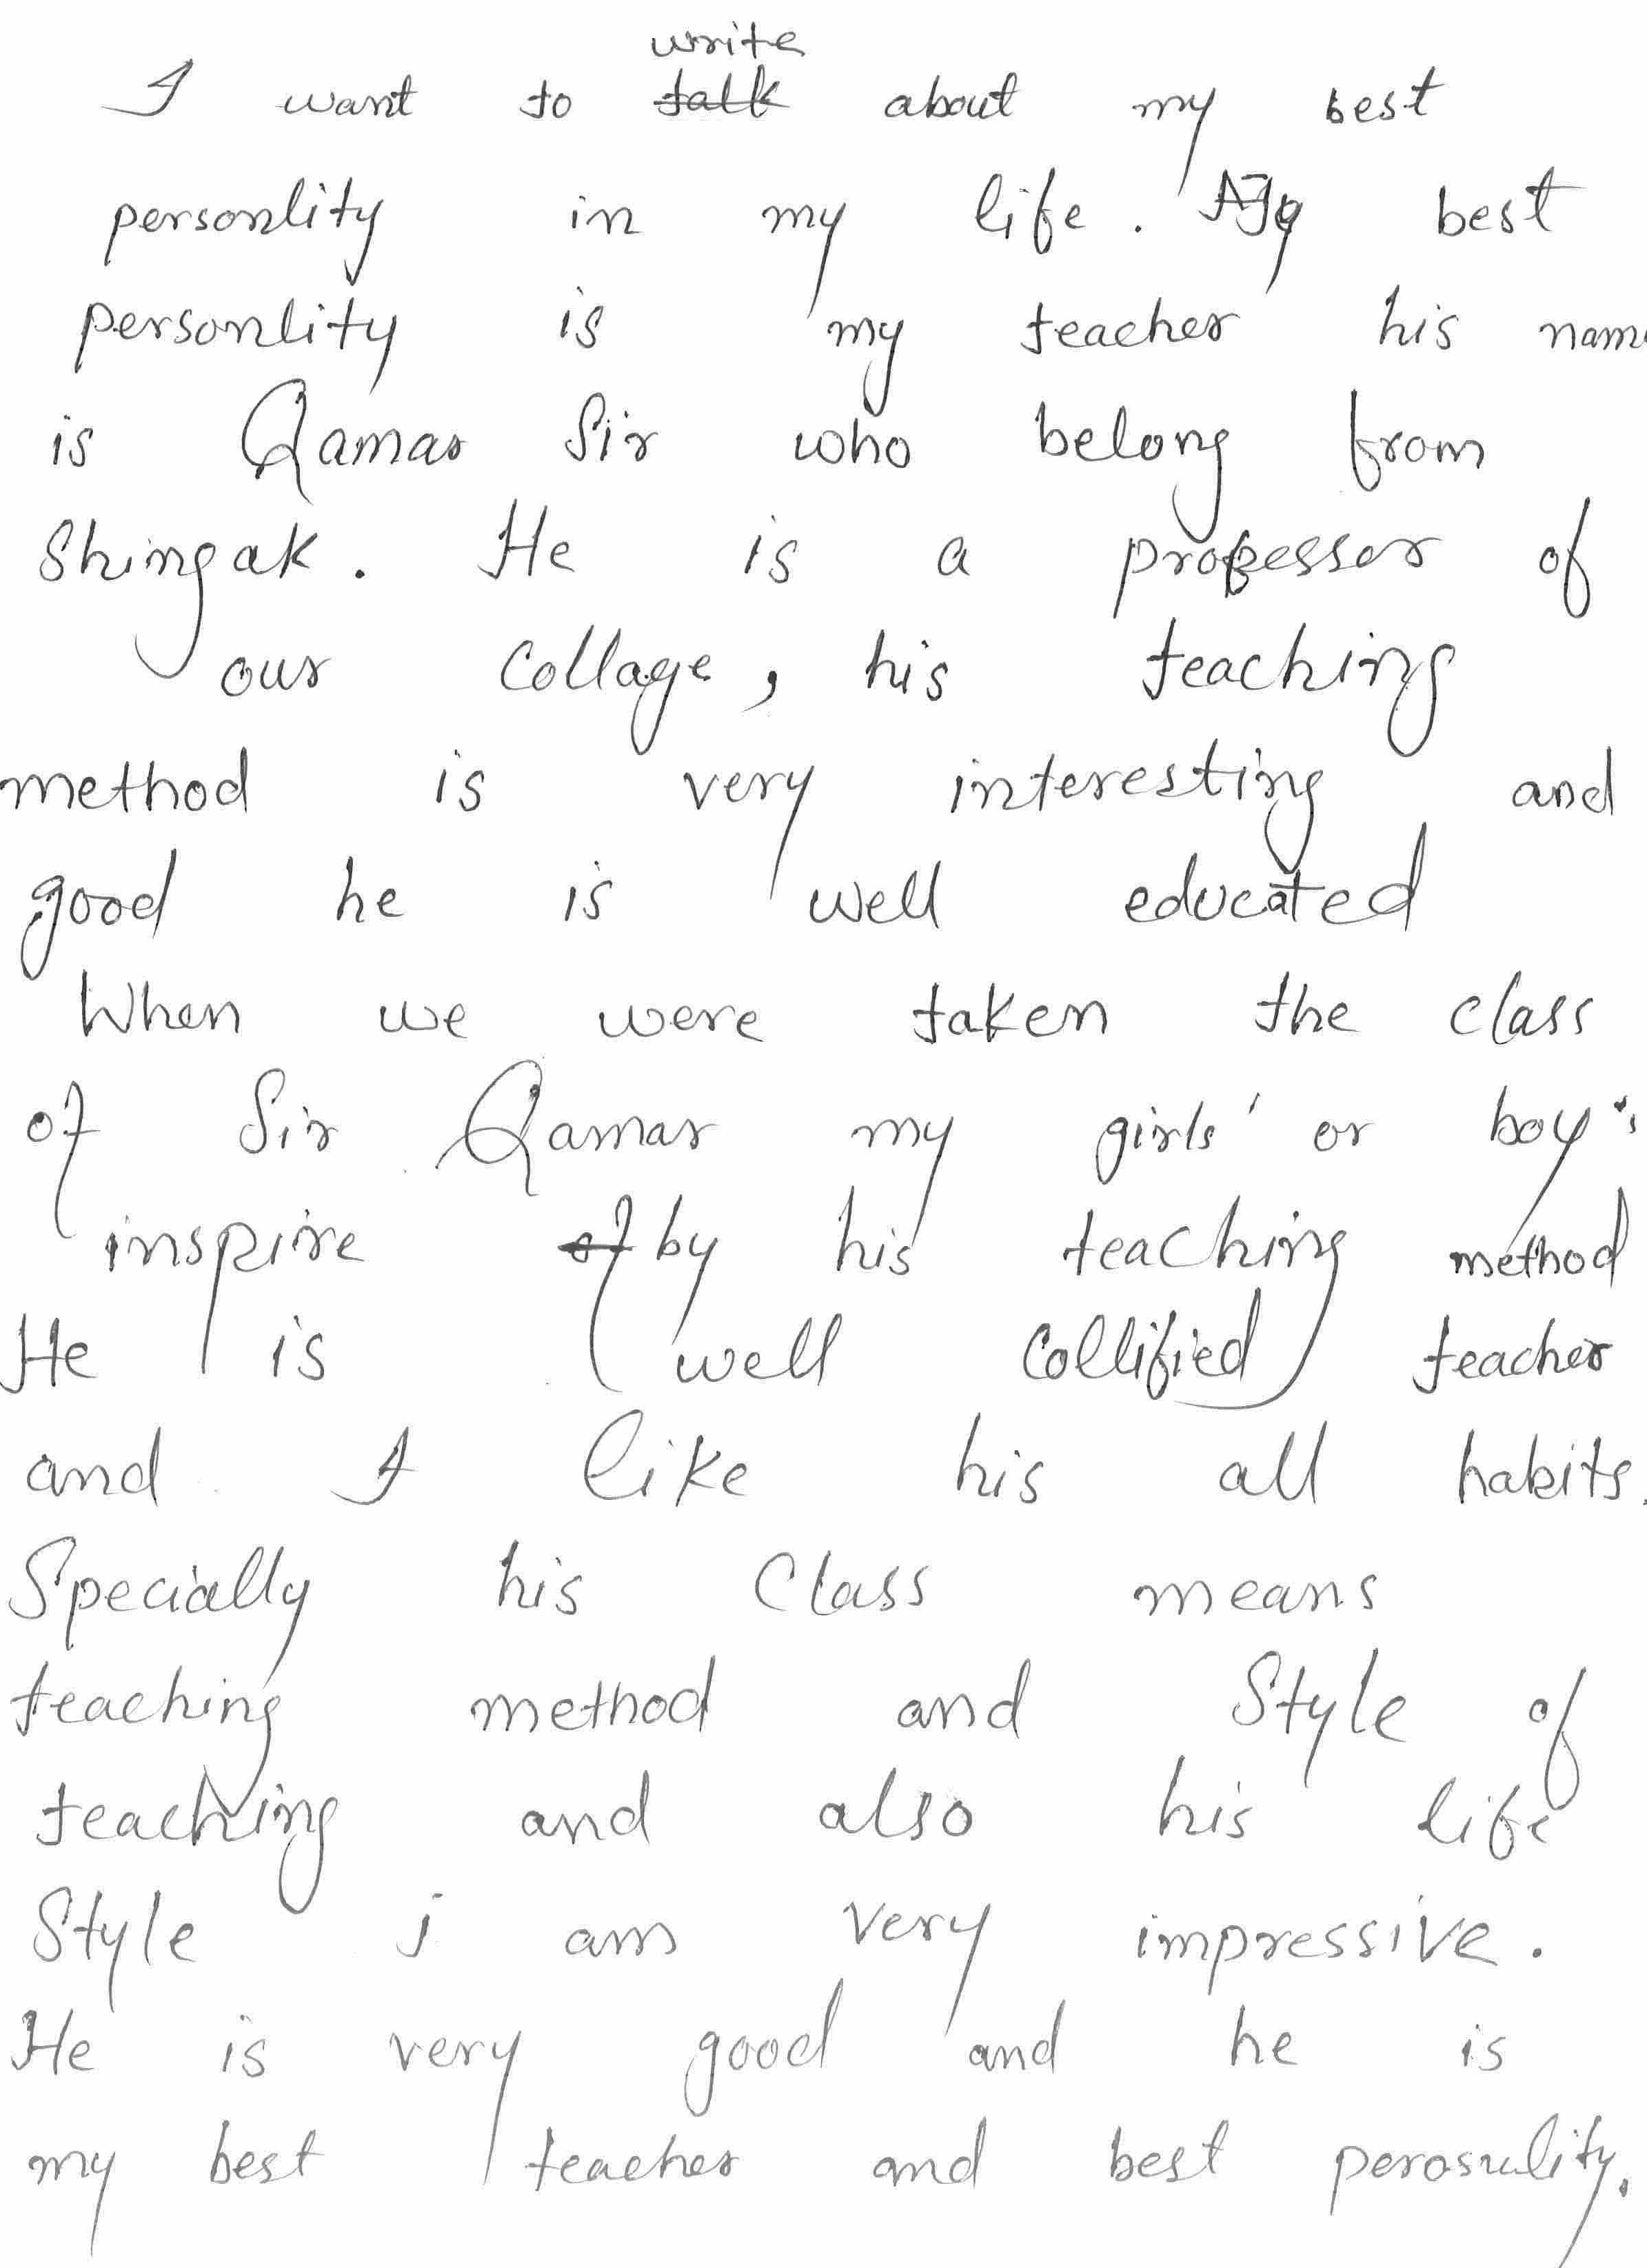 I want to write about my best
personlity in my life. My best
personlity is my teacher his name
is Qamar Sir who belong from
Shingak. He is a professor of
our collage, his teaching
method is very interesting and
good he is well educated
When we were taken the class
of Sir Qamar my girls' or boy's
inspire by his teaching method
He is well Collified teacher
and I like his all habits.
Specially his Class means
teaching method and Style of
teaching and also his life
Style i am very impressive.
He is very good and he is
my best teacher and best